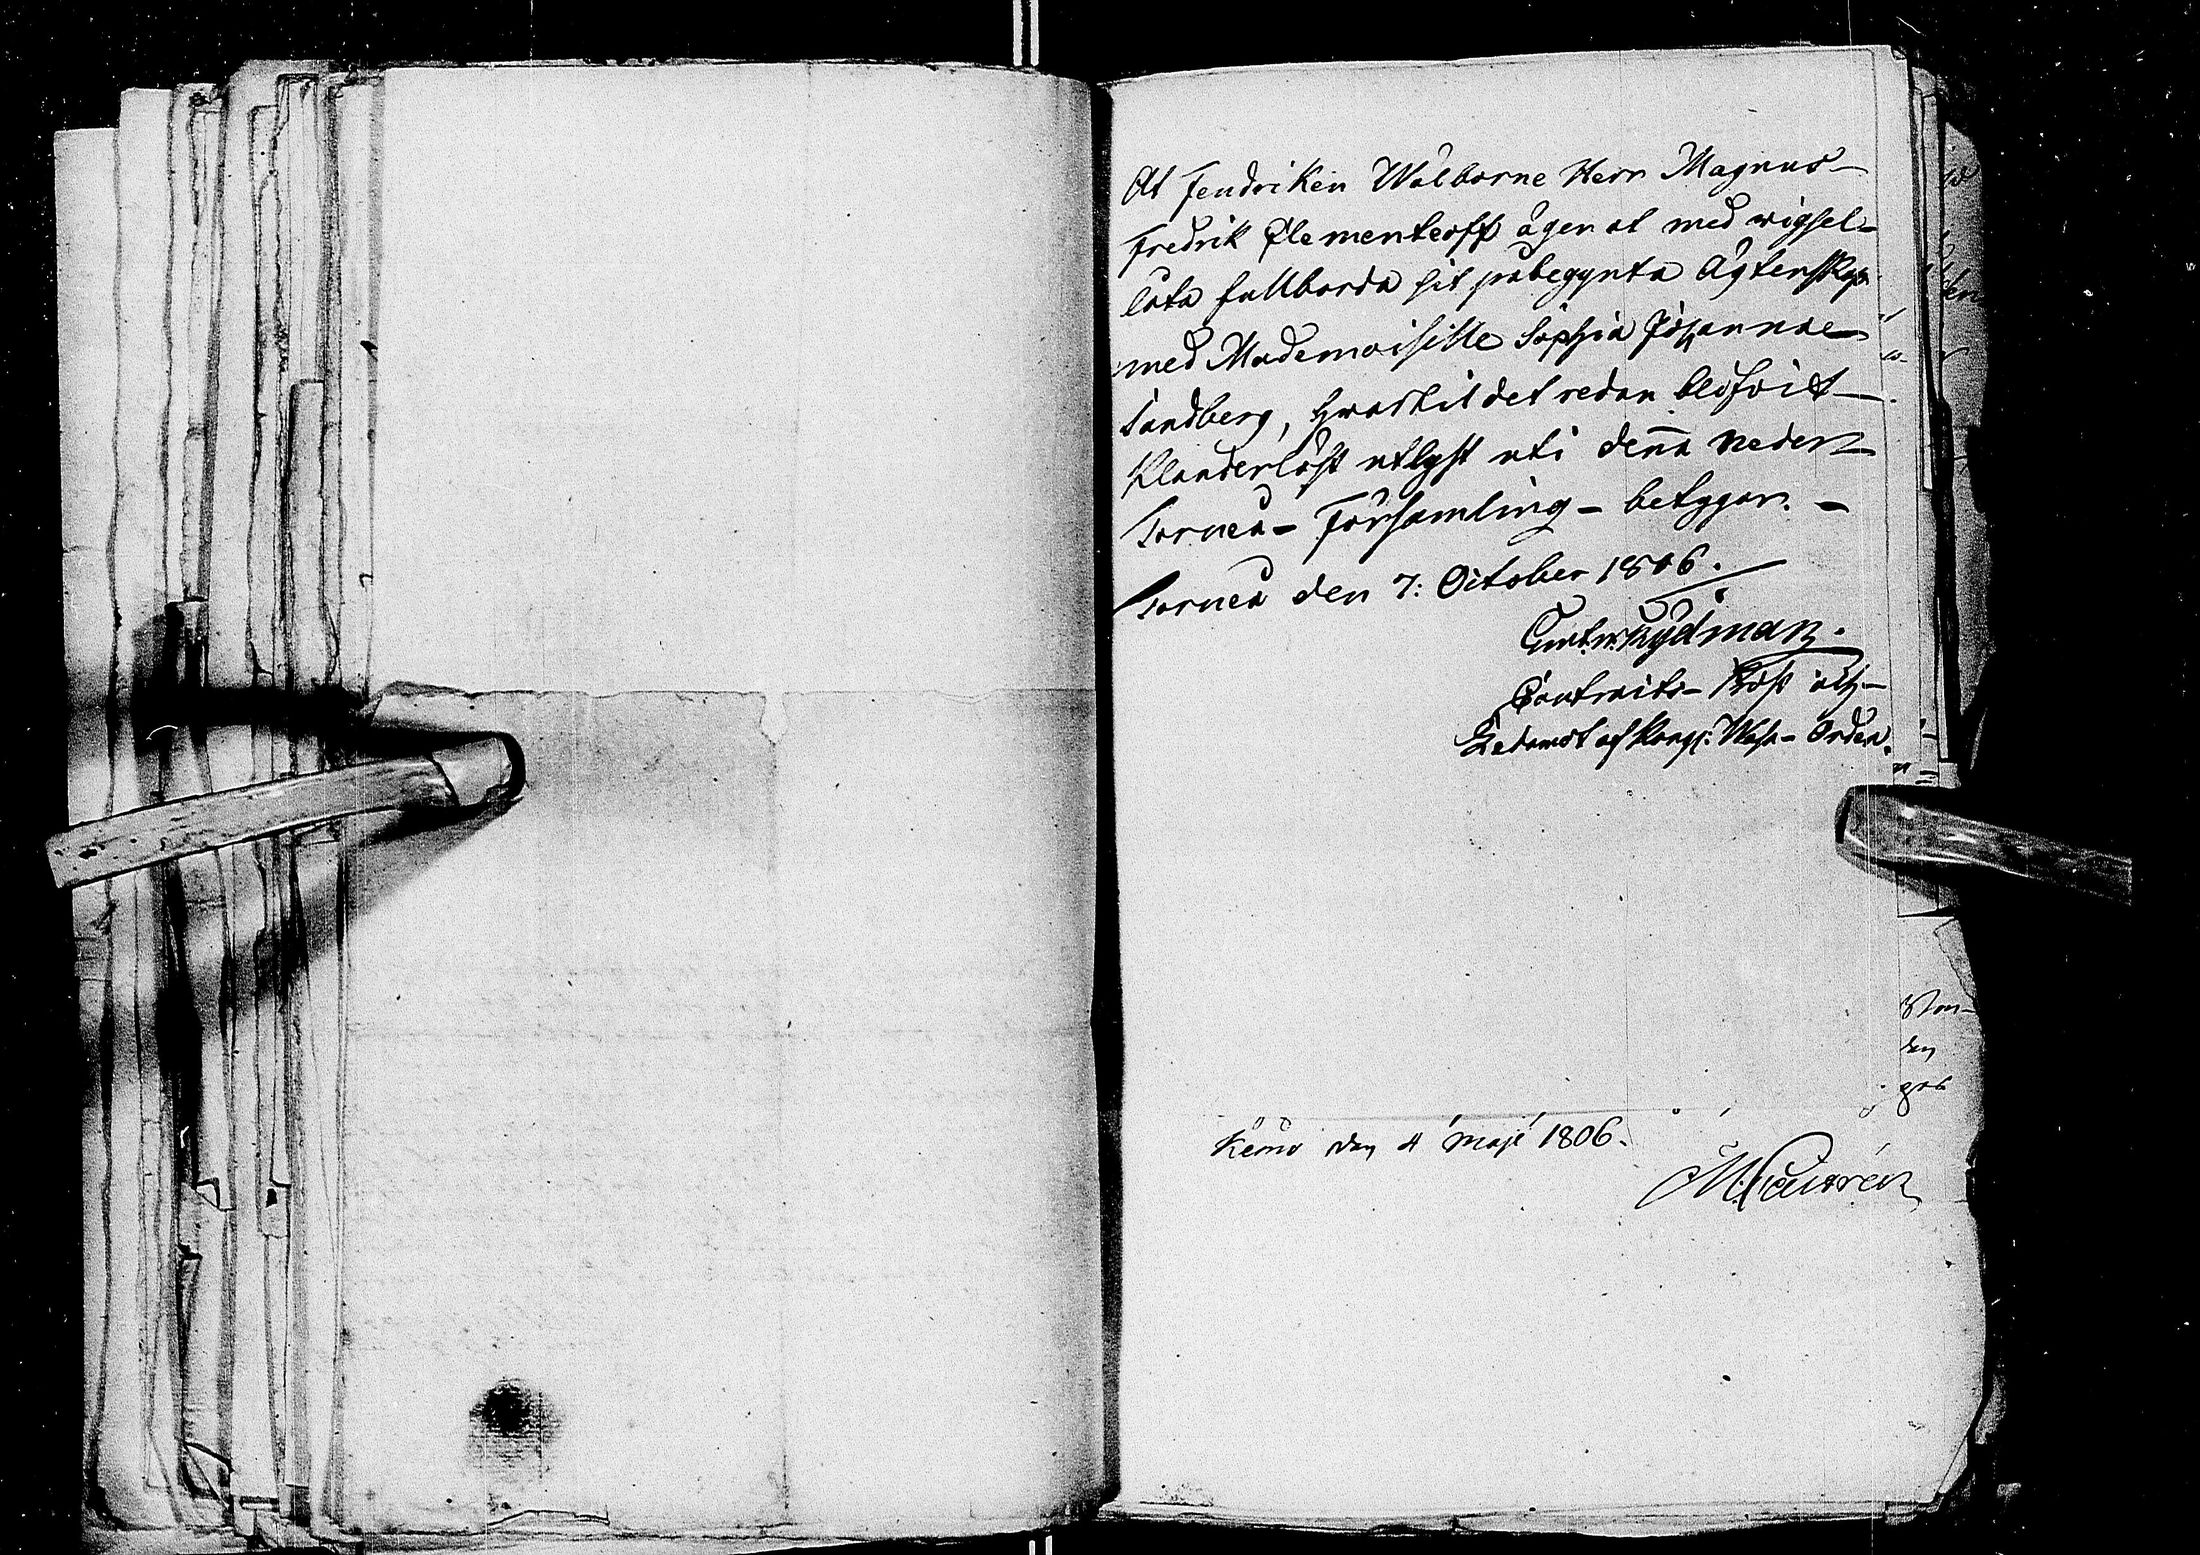 At Fendriken Wälborne Herr Magnus
Fredrik Clementeoff äger at med wigsel
låta fullborda sit påbegynta Ägtenskap
med Mademoiselle Sophia Johanna
Sandberg, hwartil det redan blifvit
Klanderlöst utlyst uti denna Neder
Torneå Församling betygar.
Torneå den 7: October 1806.
Gust. Rydman.
Contracts-Prost och
Ledamot af Kongl: Wasa-Orden.
den
Kemi den 4 Maji 1806.
M. Castrén